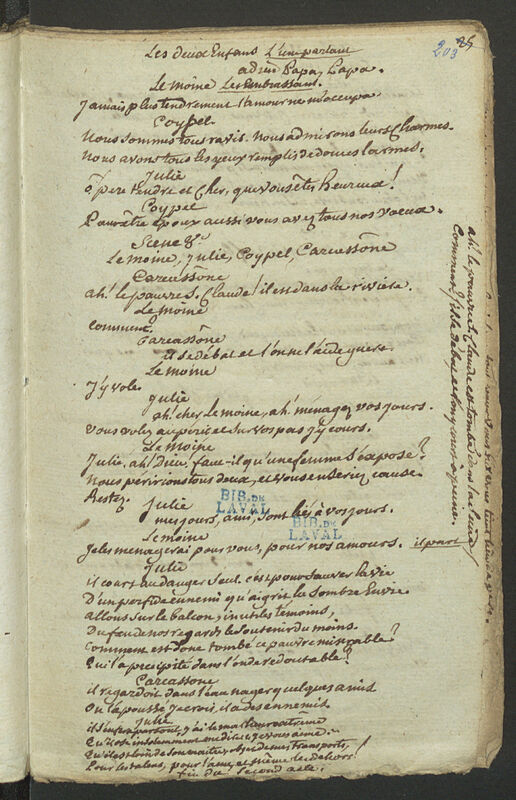 203
Les deux Enfans L'un partant
adieu Papa, Papa.
Le moine Les Embrassant.
Jamais plus tendrement l'amour ne m'occupa
Coypel
Nous sommes tous ravis. Nous admirons leurs Charmes.
Nous avons tous les yeux remplis de douces larmes.
Julie
ô père tendre et cher, que vous êtes heureux!
Coypel
Pauvre époux aussi vous avez tous nos voeux.
Scene 8e
Le moine, Julie, Coypel, Carcassône
Carcassône
ah! le pauvre S. Claude! il est dans la rivière.
Le moine
comment?
Carcassône
il se débat et l'on ne l'aide guere.
Le moine
J'y vole.
Julie
ah! cher Le moine, ah! ménagez vos jours.
Vous volez au péril et sur vos pas j'y cours.
Le moine
Julie, ah! Dieu, faut-il qu'une femme s'expose?
Nous péririons tous deux, et vous en seriez cause
Restez.
Julie
mes jours, ami, sont liés à vos jours.
Le moine
Je les menagerai pour vous, pour nos amours. il part
Julie
il court au danger seul. c'est pour sauver la vie
D'un perfide ennemi qu'aigrit la sombre Envie
allons sur le balcon, inutiles témoins,
Du feu de nos regards le soutenir du moins.
Comment est donc tombé ce pauvre misérable?
Qui l'a précipité dans l'onde redoutable?
Carcassone
il regardoit dans l'eau nager quelques amis
On l'a poussé je crois, il a des ennemis
Julie
fin du second acte.
ah! le pauvre St Claude est tombé dans la rivière
Comment? il se débat et l'on y court à peine.
BIB. DE
LAVAL
BIB. DE
LAVAL